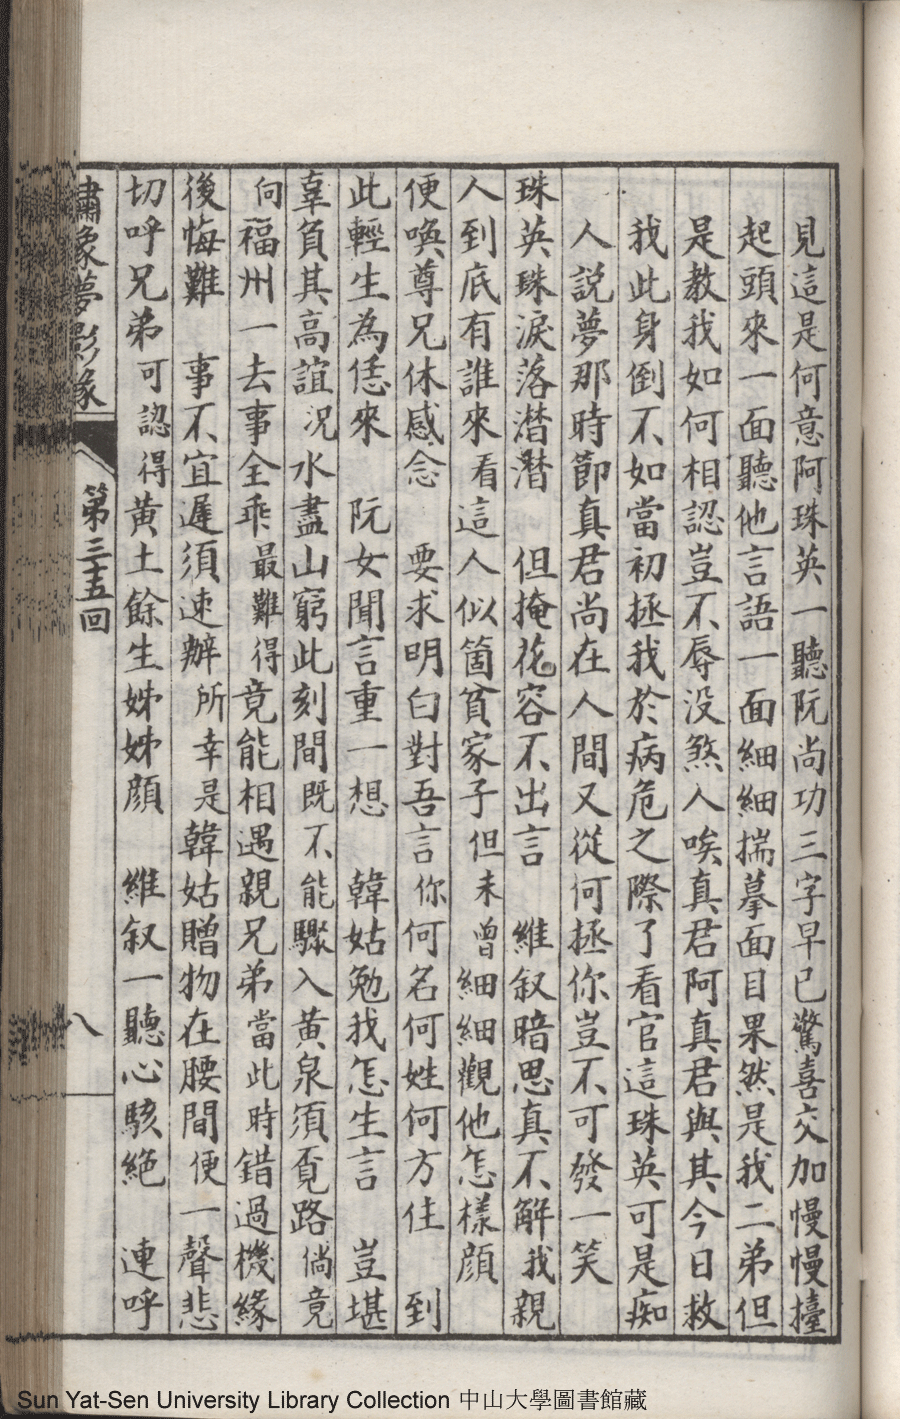 見這是何意阿珠英一聽阮尚功三字早已驚喜交加慢慢擡
起頭來一面聽他言語一面細細揣摹面目果然是我二弟但
是教我如何相認豈不辱没煞人唉真君阿真君與其今日救
我此身倒不如當初拯我於病危之際了看官這珠英可是痴
人説夢那時節真君尚在人間又從何拯你豈不可發一笑
珠英珠淚落潛潛　但掩花容不出言　維叙暗思真不解我親
人到底有誰來看這人似箇貧家子但未曾細細觀他怎樣顔
便喚尊兄休感念　要求明白對吾言你何名何姓何方住　到
此輕生為恁來　阮女聞言重一想　韓姑勉我怎生言　豈堪
辜負其高誼况水盡山窮此刻間既不能驟入黄泉須覓路倘竟
向福州一去事全乖最難得竟能相遇親兄弟當此時錯過機緣
後悔難　事不宜遲須速辦所幸是韓姑贈物在腰間便一聲悲
切呼兄弟可認得黄土餘生姊姊顔　維叙一聽心駭絶　連呼
繡像夢影緣
第三十五回
八
Sun Yat-Sen University Library Collection 中山大學圖書館藏